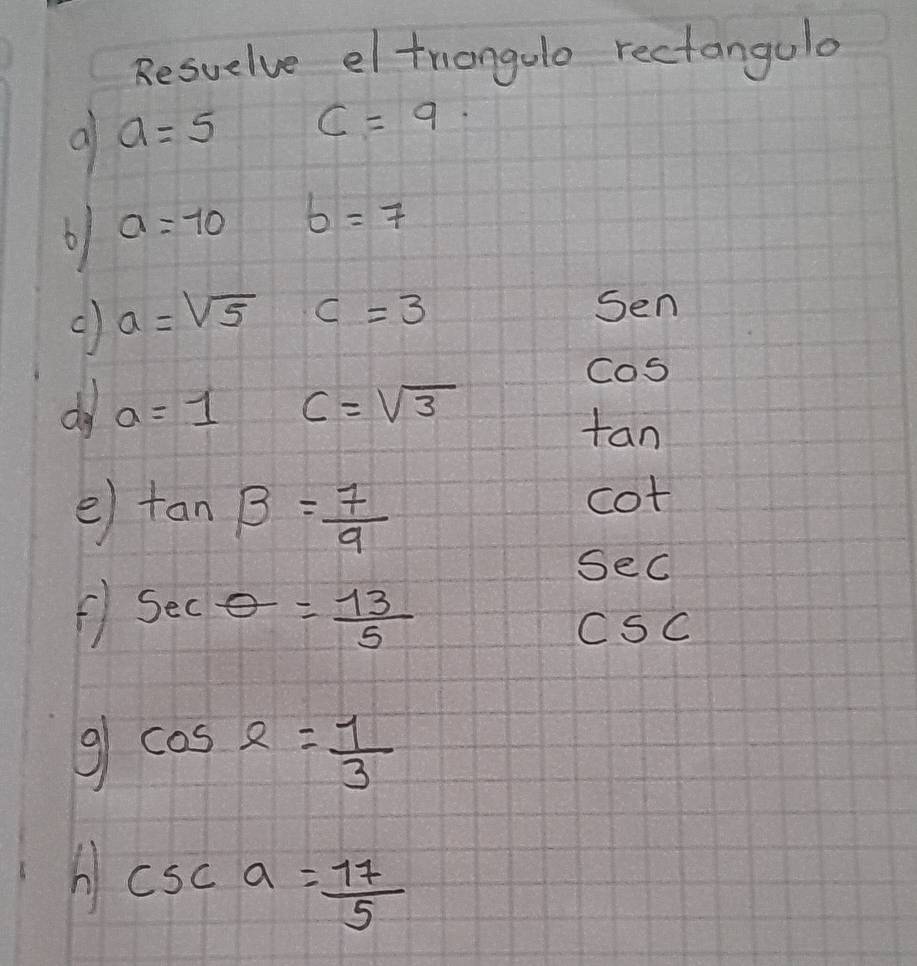 Resuelve el triangulo rectangulo
a) a = 5 C = 9.
b) a = 10 b = 7
c) a = √5 c = 3
d) a = 1 C = √3
e) tan β = 7/9
f) Sec θ = 13/5
g) cos α = 1/3
h) csc a = 17/5
Sen
cos
tan
cot
Sec
CSC